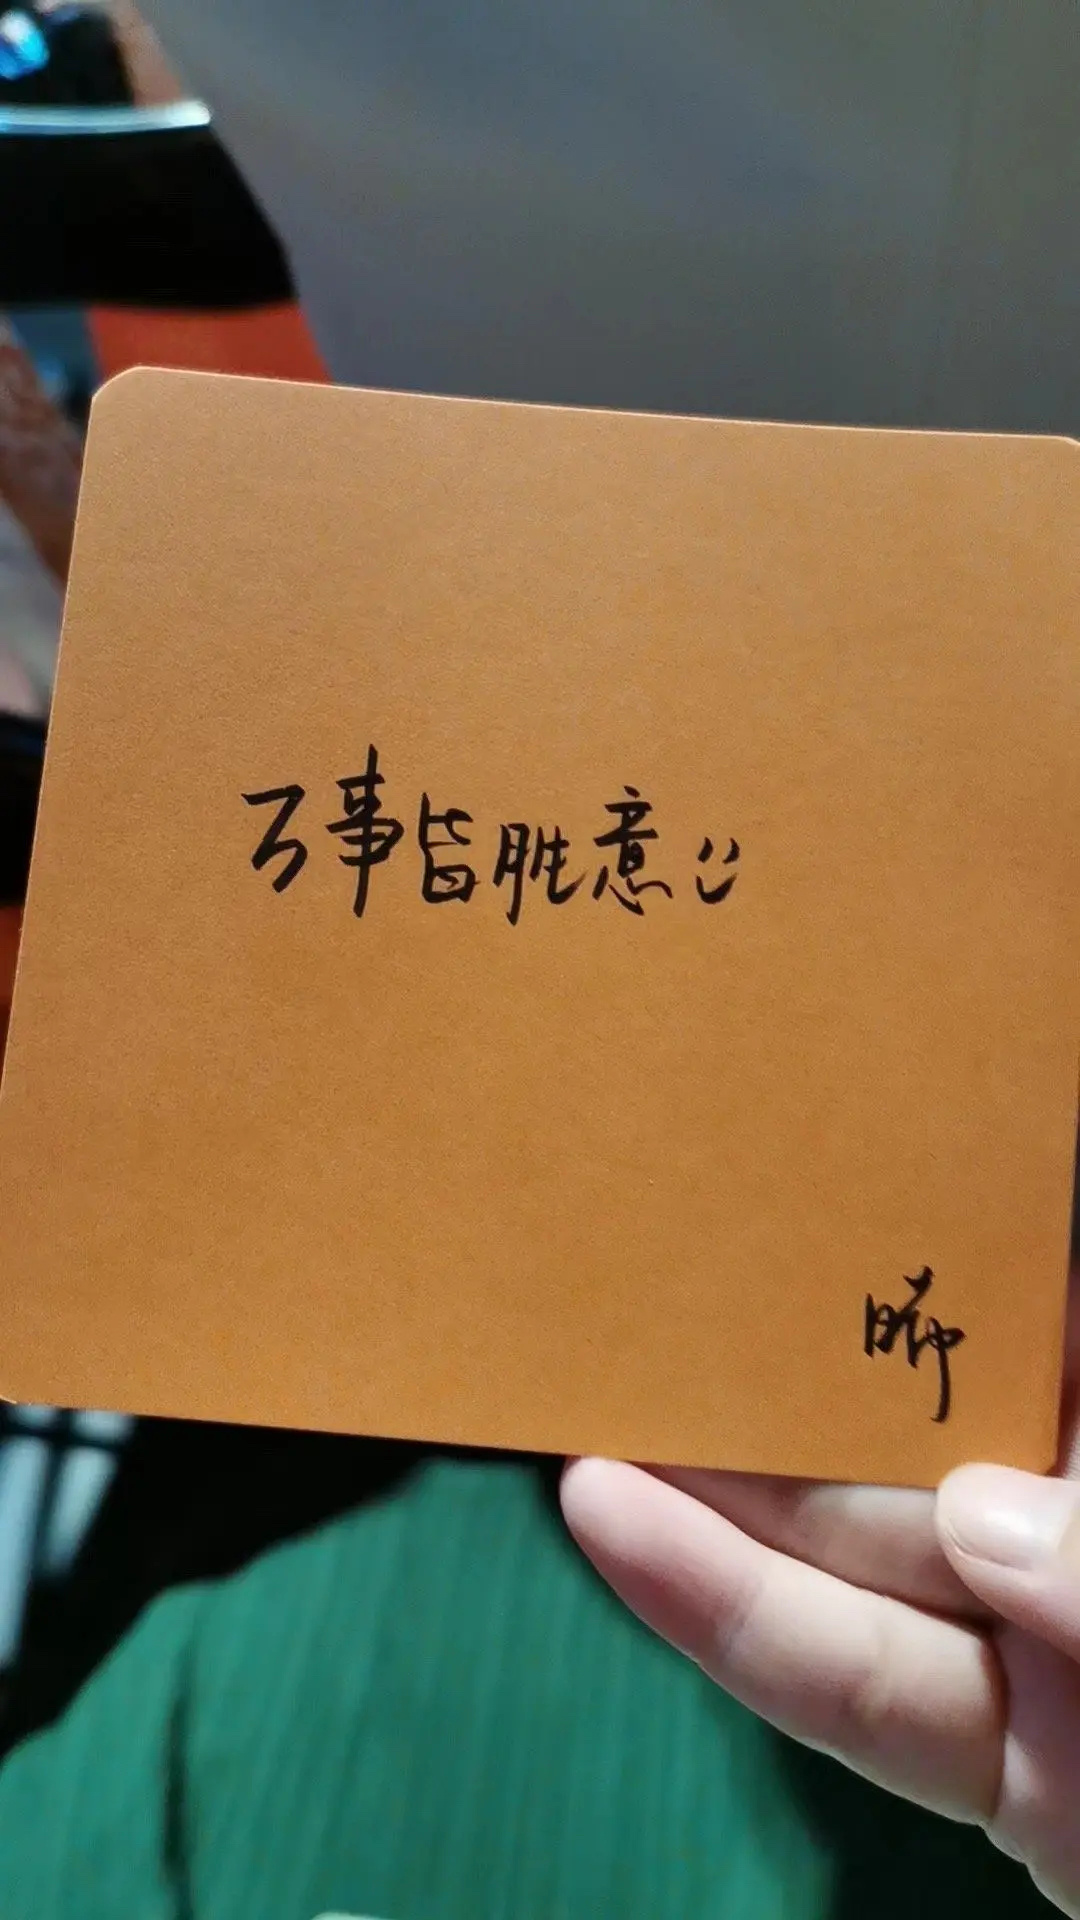 万事皆胜意